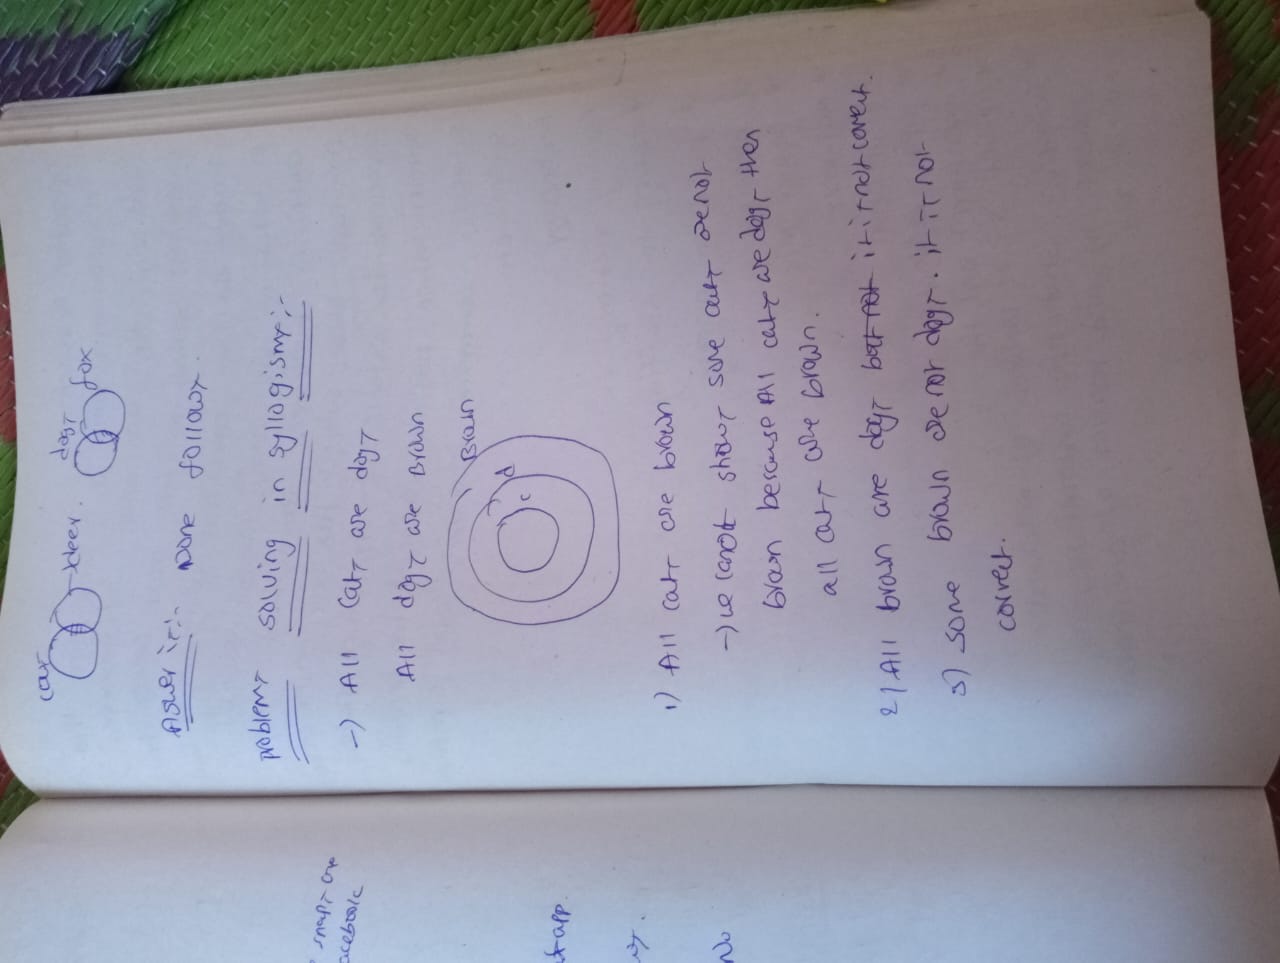 cat deer. dogs fox
Aswer is:- none follows.
problems solving in syllogisms:-
-) All cats are dogs
All dogs are Brown
Brawn
d
c
1) All cats are brown
-) we cannot shows some cats are not
brawn because All cats are dogs then
all cats are brown.
2) All brawn are dogs but not it is not correct.
3) some brawn are not dogs. it is not
correct.
snaps are
facebook
No